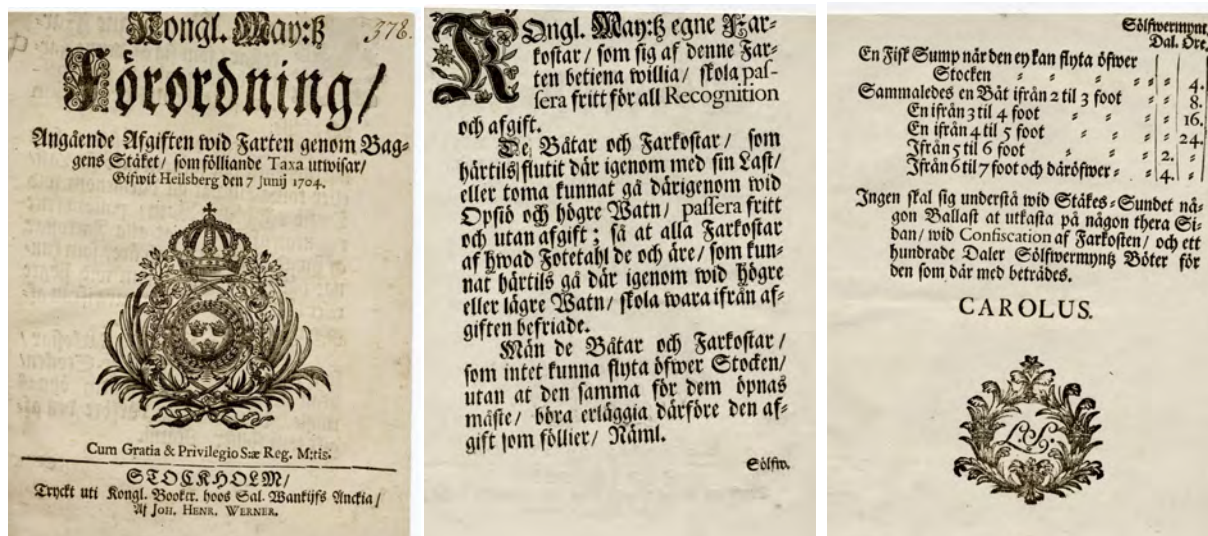 Kongl. May:tz
378.
Förordning/
Angående Afgiften wid Farten genom Bag-
gens Stäket/ som fölliande Taxa utwisar/
Gifwit Heilsberg den 7 Junij 1704.
Cum Gratia & Privilegio S:æ Reg. M:tis.
STOCKHOLM/
Tryckt uti Kongl. Booktr. hoos Sal. Wankijfs Änckia/
Af JOH. HENR. WERNER.
KOngl. May:tz egne Far-
kostar/ som sig af denne Far-
ten betiena willia/ skola pas-
sera fritt för all Recognition
och afgift.
De Båtar och Farkostar/ som
härtils flutit där igenom med sin Last/
eller toma kunnat gå därigenom wid
Opsiö och högre Watn/ passera fritt
och utan afgift; så at alla Farkostar
af hwad Fotetahl de och äre/ som kun-
nat härtils gå där igenom wid högre
eller lägre Watn/ skola wara ifrån af-
giften befriade.
Män de Båtar och Farkostar/
som intet kunna flyta öfwer Stocken/
utan at den samma för dem öpnas
måste/ böra erläggia därföre den af-
gift som föllier/ Näml.
Sölfw.
Sölfwermynt.
Dal. Öre.
En Fisk Sump när den ey kan flyta öfwer
Stocken 4.
Sammaledes en Båt ifrån 2 til 3 foot 8.
En ifrån 3 til 4 foot 16.
En ifrån 4 til 5 foot 24.
Ifrån 5 til 6 foot 2.
Ifrån 6 til 7 foot och däröfwer 4.
Ingen skal sig understå wid Stäkes-Sundet nå-
gon Ballast at utkasta på någon thera Si-
dan/ wid Confiscation af Farkosten/ och ett
hundrade Daler Sölfwermyntz Böter för
den som där med beträdes.
CAROLUS.
L.S.